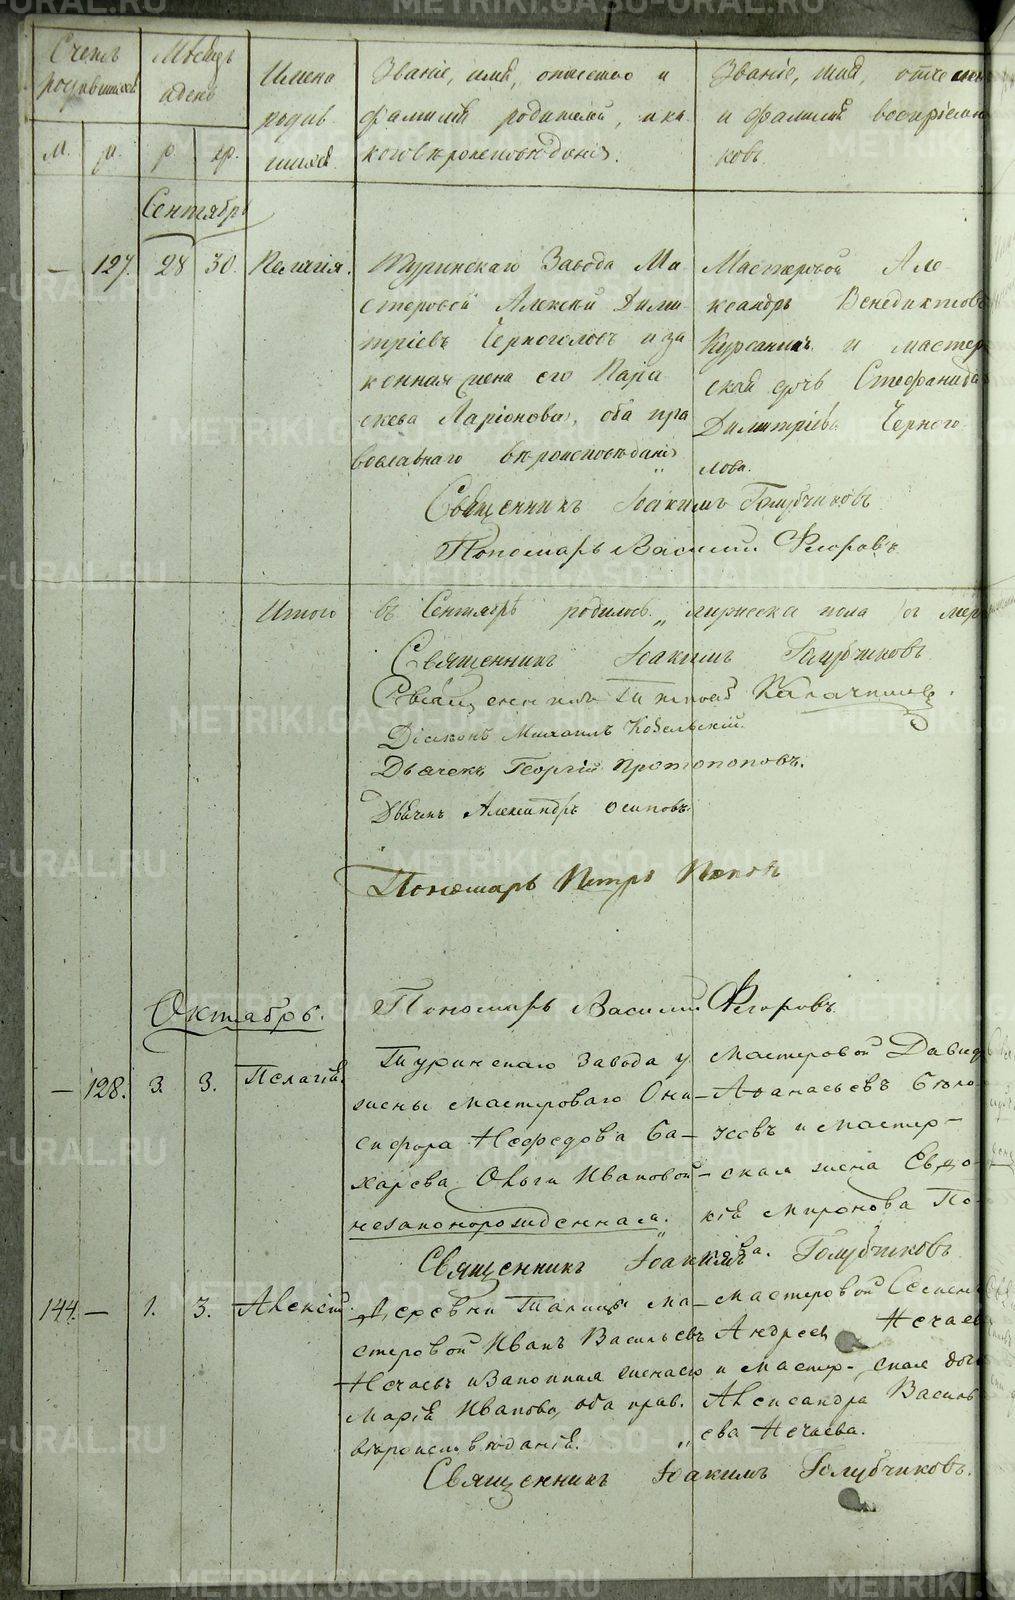 Счетъ родившихся
Мѣсяцъ и день
Имена родившихся
Званіе, имя, отчество и фамилія родителей, и какого вѣроисповѣданія.
Званіе, имя, отчество и фамилія воспріемниковъ.
м. ж. р. кр.
Сентябрь
— 127. 28 30. Пелагія.
Туринскаго Завода Ма-
стеровой Алексѣй Дими-
тріевъ Черноголовъ и за
конная жена его Пара
скева Ларіонова, оба пра
вославнаго вѣроисповѣданія
Мастеровой Але-
ксандръ Венедиктовъ
и мастер
ская дочь Стефанида
Димитріева Черного
лова.
Священникъ Іоакимъ Голубчиковъ
Пономарь Василій Флоровъ
Итого въ Сентябрѣ родилось „ мужеска пола
Священникъ Іоакимъ Голубчиковъ
Священникъ
Діаконъ Михаилъ Кобельскій.
Дьячекъ Георгій Протопоповъ.
Дьячекъ Александръ Осиповъ
Пономарь Петръ Поповъ
Пономарь Василій Флоровъ
Октябрь.
— 128. 3. 3. Пелагія.
Туринскаго Завода у
жены мастероваго Они-
сифора Нефедова Ба-
харева Ольги Ивановой
незаконорожденная.
Мастеровой Давидъ
Афанасьевъ Бѣло-
усовъ и мастер-
ская жена Евдо-
кія Миронова По-
Священникъ Іоакимъ Голубчиковъ
144. — 1. 3. Алексій.
Деревни Талицы ма-
стеровой Иванъ Васильевъ
Нечаевъ и законная жена его
Марія Иванова, оба прав.
вѣроисповѣданія.
Мастеровой Семенъ
Андреев Нечаев
и мастер-ская дочь
Александра Василь
ева Нечаева.
Священникъ Іоакимъ Голубчиковъ.
METRIKI.GASO-URAL.RU